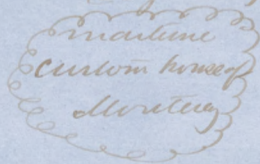 maritime
custom house of
Monterey